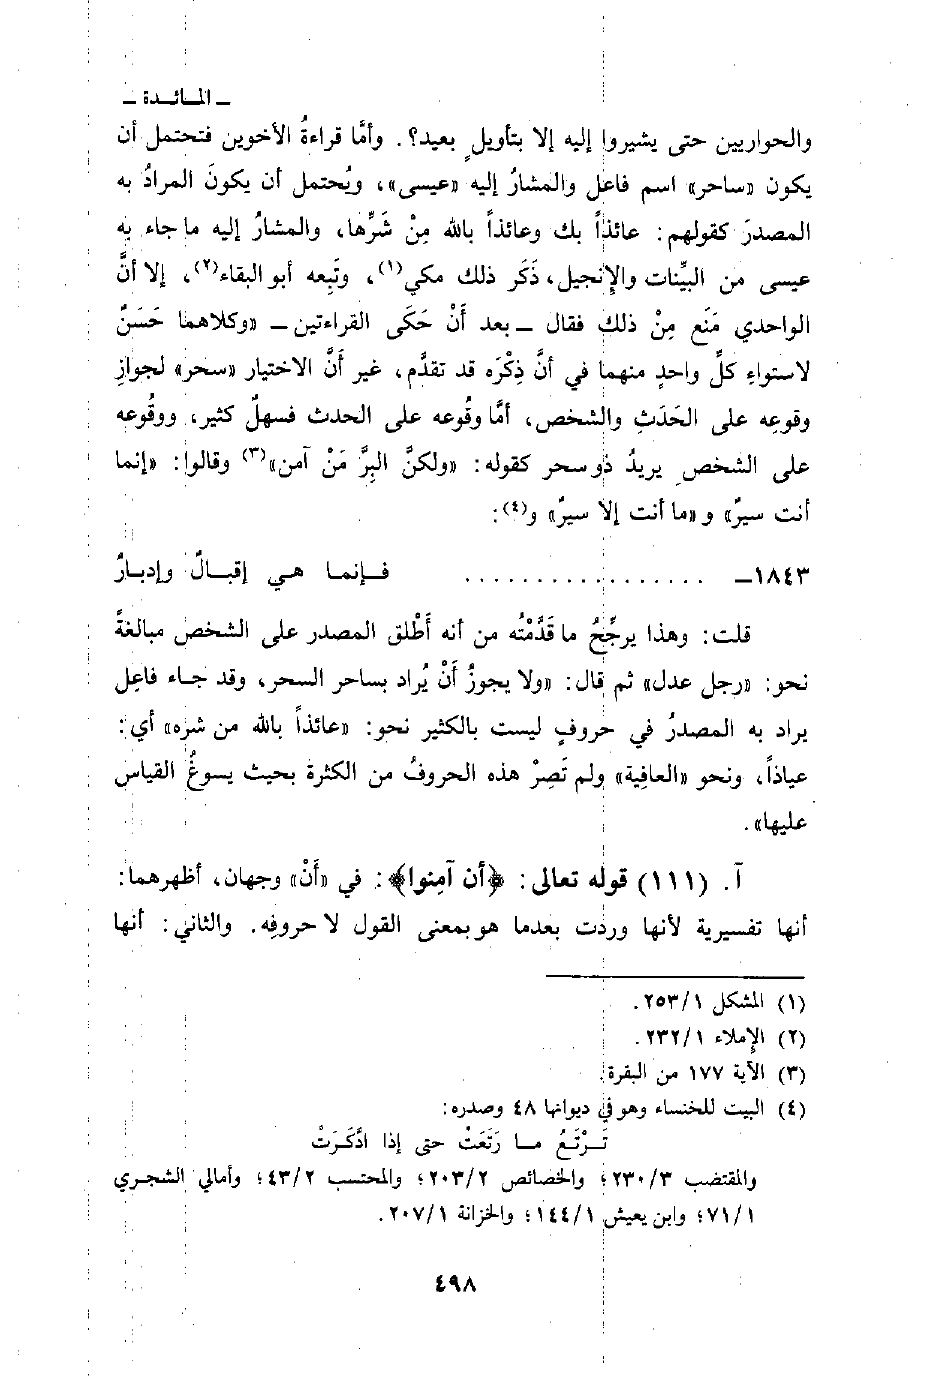 ـ المـائـدة ـ
والحواريين حتى يشيروا إليه إلا بتأويلٍ بعيد؟. وأمَّا قراءةُ الأخوين فتحتمل أن
يكون «ساحر» اسم فاعل والمشارُ إليه «عيسى»، ويُحتمل أن يكونَ المرادُ به
المصدرَ كقولهم: عائذاً بك وعائذاً بالله مِنْ شَرِّها، والمشارُ إليه ما جاء به
عيسى من البيِّنات والإنجيل، ذَكَر ذلك مكي(١)، وتَبِعه أبو البقاء(٢)، إلا أنَّ
الواحدي مَنَع مِنْ ذلك فقال ـ بعد أَنْ حَكَى القراءتين ـ «وكلاهما حَسَنٌ
لاستواءِ كلِّ واحدٍ منهما في أنَّ ذِكْرَه قد تقدَّم، غير أَنَّ الاختيار «سحر» لجوازِ
وقوعِه على الحَدَثِ والشخص، أمَّا وقُوعه على الحدث فسهلٌ كثير، ووقُوعه
على الشخصِ يريدُ ذو سحر كقوله: «ولكنَّ البِرَّ مَنْ آمن»(٣) وقالوا: «إنما
أنت سيرٌ» و «ما أنت إلا سيرٌ» و(٤):
١٨٤٣ـ ................. فـإنما هـي إقبـالٌ وإدبـارُ
قلت: وهذا يرجِّحُ ما قَدَّمْتُه من أنه أَطْلق المصدر على الشخص مبالغةً
نحو: «رجل عدل» ثم قال: «ولا يجوزُ أَنْ يُراد بساحر السحر، وقد جـاء فاعِل
يراد به المصدرُ في حروفٍ ليست بالكثير نحو: «عائذاً بالله من شره» أي:
عياذاً، ونحو «العافِية» ولم تَصِرْ هذه الحروفُ من الكثرة بحيث يسوغُ القياس
عليها».
آ. (١١١) قوله تعالى: ﴿أن آمِنوا﴾: في «أَنْ» وجهان، أظهرهما:
أنها تفسيرية لأنها وردَت بعدما هو بمعنى القول لا حروفِه. والثاني: أنها
(١) المشكل ٢٥٣/١.
(٢) الإملاء ٢٣٢/١.
(٣) الآية ١٧٧ من البقرة.
(٤) البيت للخنساء وهو في ديوانها ٤٨ وصدره:
تَـرْتَعُ مـا رَتَعَتْ حتى إذا ادَّكَـرَتْ
والمقتضب ٢٣٠/٣؛ والخصائص ٢٠٣/٢؛ والمحتسب ٤٣/٢؛ وأمالي الشجـري
٧١/١؛ وابن يعيش ١٤٤/١؛ والخزانة ٢٠٧/١.
٤٩٨